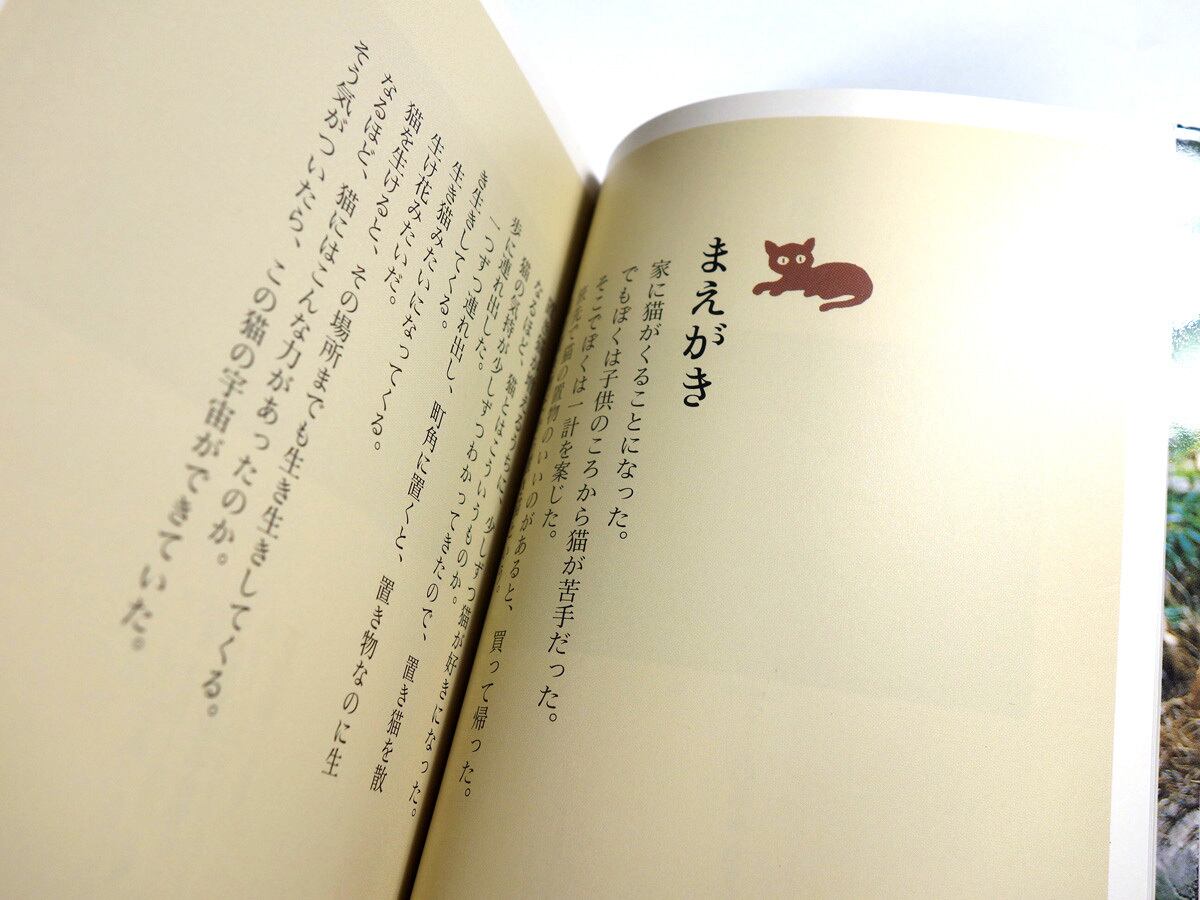 まえがき
家に猫がくることになった。
でもぼくは子供のころから猫が苦手だった。
そこでぼくは一計を案じた。
旅先で猫の置物のいいのがあると、買って帰った。
なるほど、猫とはこういうものか。
猫が増えるうちに、少しずつ猫が好きになった。
猫の気持が少しずつわかってきたので、置き猫を散
歩に連れ出した。
一つずつ連れ出し、町角に置くと、置き物なのに生
き生きしてくる。
生き猫みたいになってくる。
生け花みたいだ。
猫を生けると、その場所までも生き生きしてくる。
なるほど、猫にはこんな力があったのか。
そう気がついたら、この猫の宇宙ができていた。